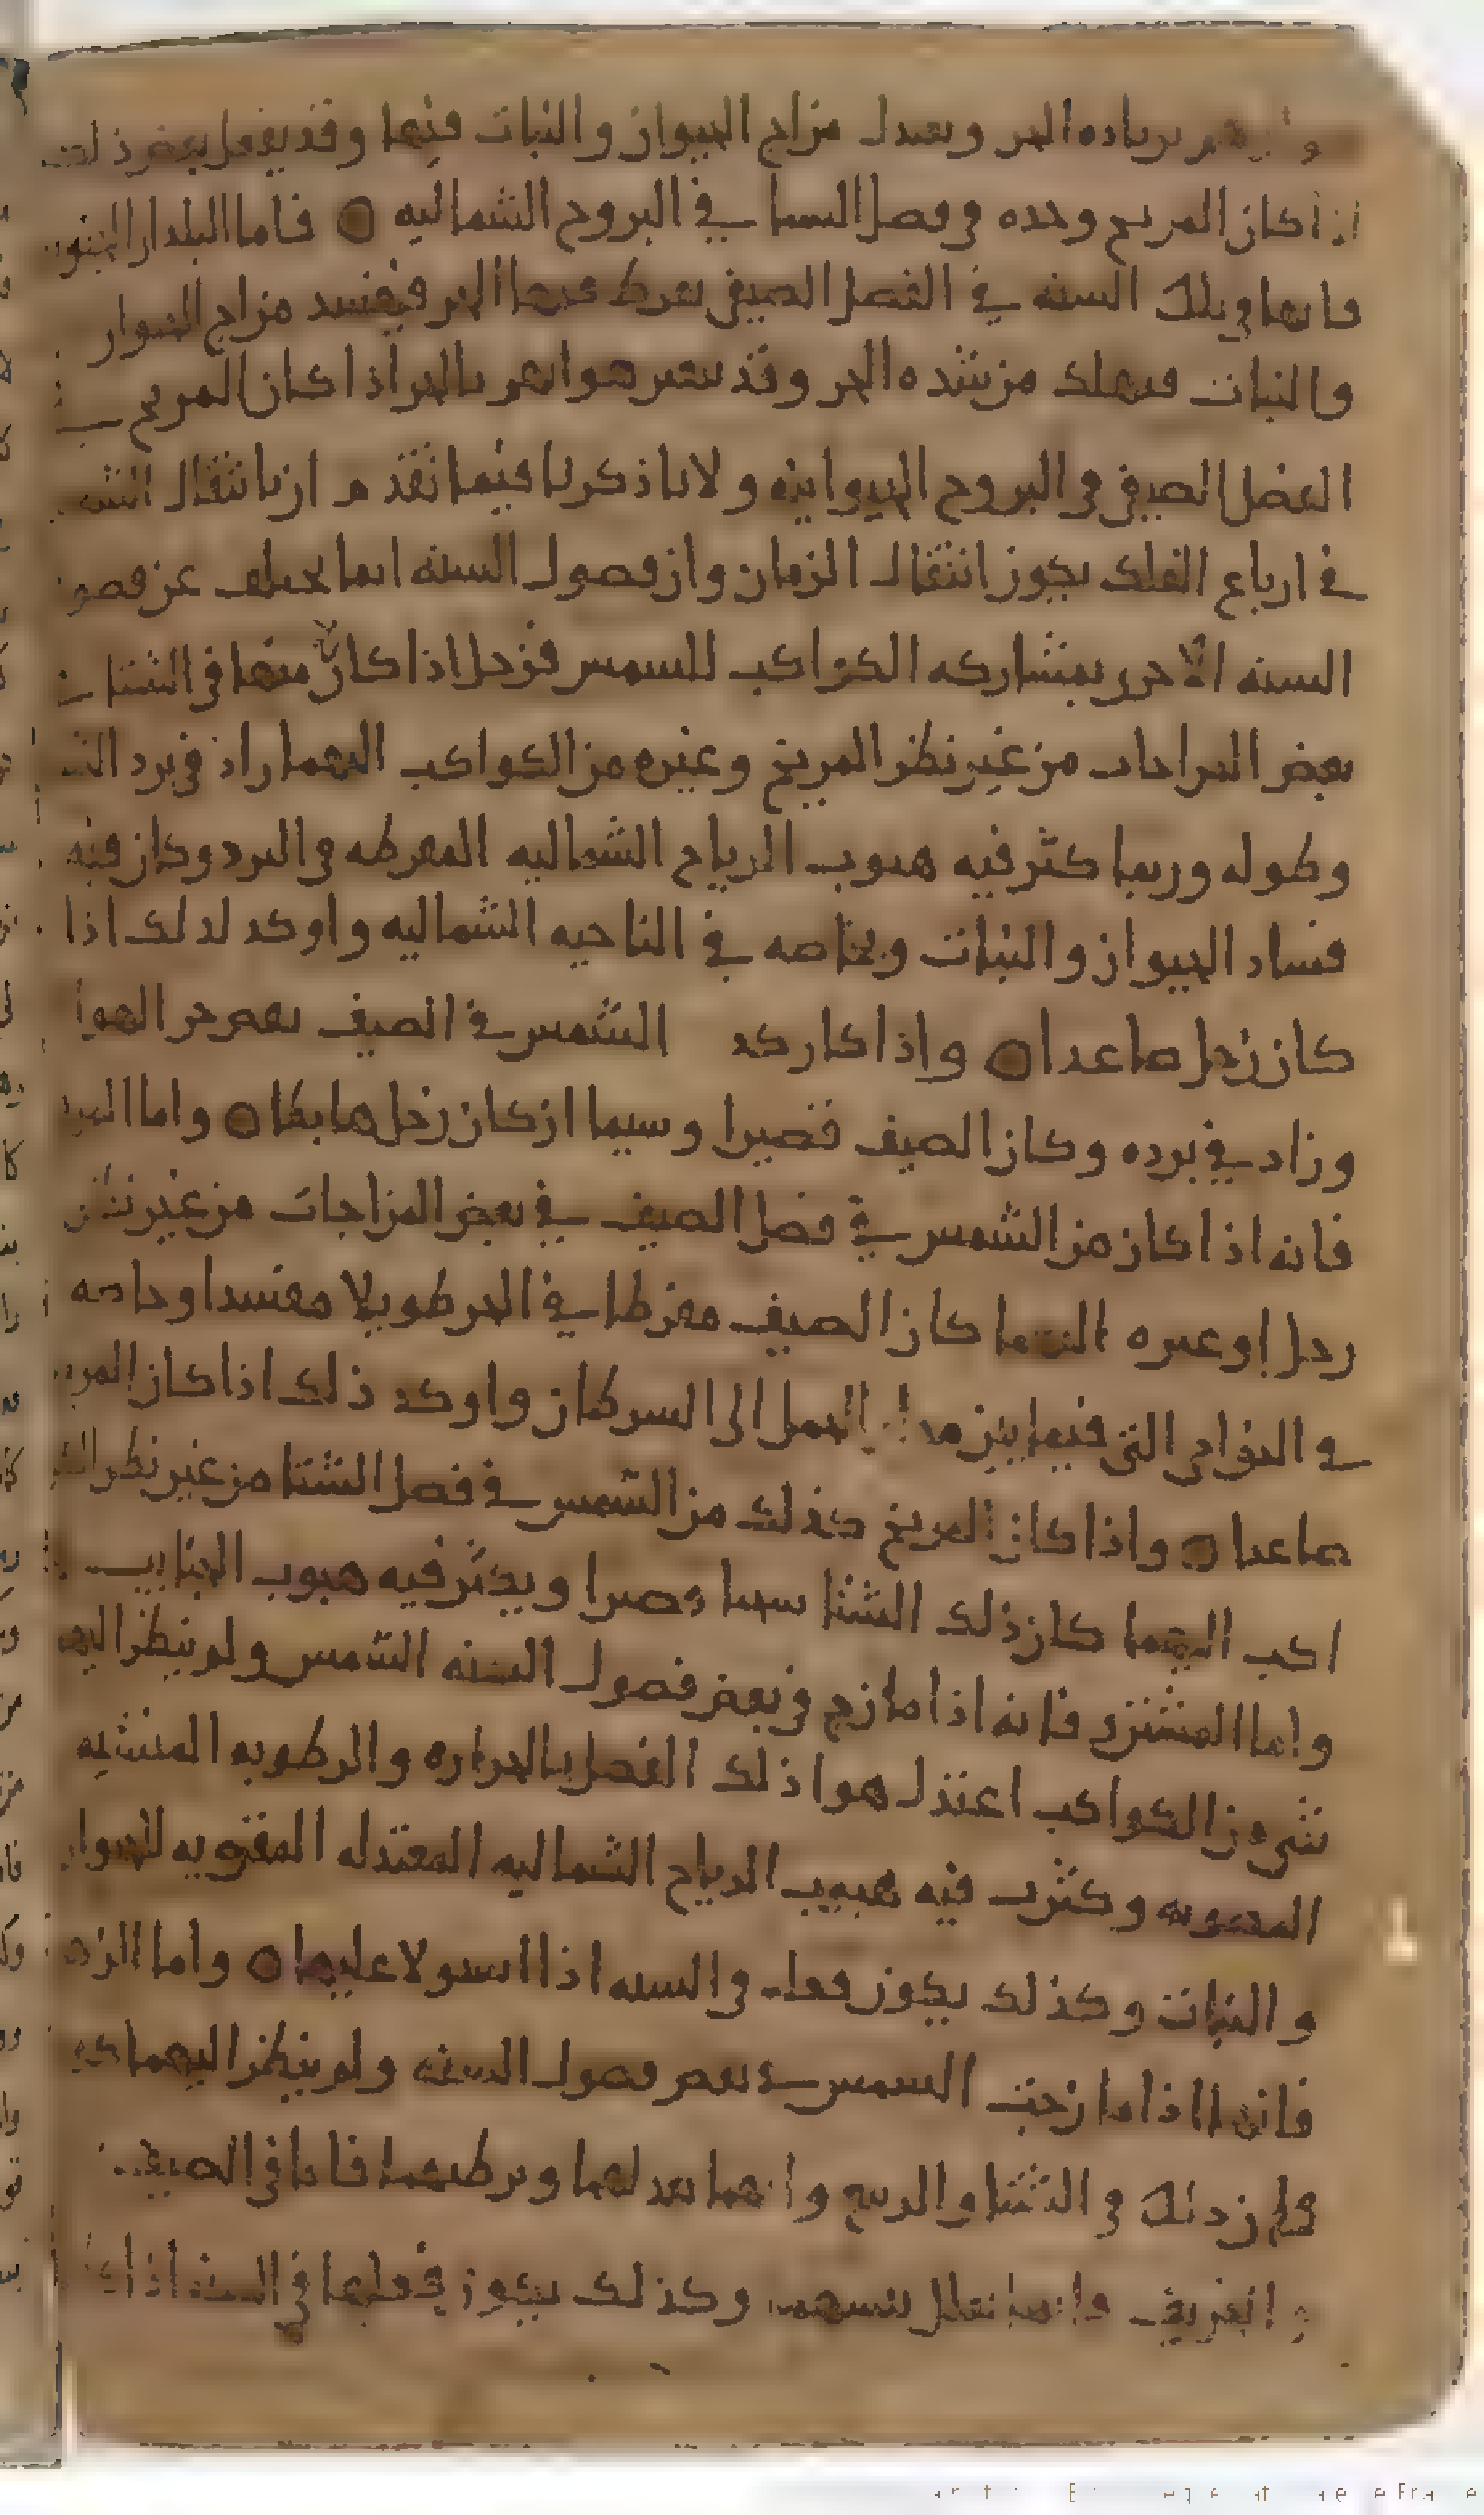 بزياده الحر وبعدل مزاج الحيوان والنبات فيها وقد يفعل بعض ذلك
اذا كان المريخ وحده في فصل الشتا في البروج الشماليه ○ فاما البلدان الجنو
فانها في تلك السنه في الفصل الصيفي يفرط فيها الحر فيفسد مزاج الحيوان
والنبات فيهلك من شده الحر وقد يتغير هواهم بالحر اذا كان المريخ في
الفصل الصيفي في البروج الهوائيه ولانا ذكرنا فيما تقدم ان بانتقال الشمس
في ارباع الفلك يكون انتقال الزمان وان فصول السنه انما تختلف عن فصول
السنه الاخرى بمشاركه الكواكب للشمس فزحل اذا كان منها في الشتا في
بعض المزاجات من غير نظر المريخ وغيره من الكواكب اليهما زاد في برد الشتا
وطوله وربما كثر فيه هبوب الرياح الشماليه المفرطه في البرد وكان فيه
فساد الحيوان والنبات وبخاصه في الناحيه الشماليه واوكد لذلك اذا
كان زحل صاعدا ○ واذا كان كذلك الشمس في الصيف نقص حر الهوا
وزاد في برده وكان الصيف قصيرا وسيما ان كان زحل هابطا ○ واما المريخ
فانه اذا كان من الشمس في فصل الصيف في بعض المزاجات من غير نظر
زحل او غيره اليهما كان الصيف مفرطا في الحر طويلا مفسدا وخاصه
في النواحي التي فيما بين مدار الحمل الى السرطان واوكد ذلك اذا كان المريخ
صاعدا ○ واذا كان المريخ كذلك من الشمس في فصل الشتا من غير نظر الكو
اكب اليهما كان ذلك الشتا سخنا قصيرا ويكثر فيه هبوب الجنايب
واما المشتري فانه اذا مازج في بعض فصول السنه الشمس ولم ينظر اليهما
شي من الكواكب اعتدل هوا ذلك الفصل بالحراره والرطوبه المنشيه
وكثرت فيه هبوب الرياح الشماليه المعتدله المقويه للحيوان
والنبات وكذلك يكون فعله في السنه اذا استولا عليها ○ واما الزهره
فانها اذا مازجت الشمس في بعض فصول السنه ولم ينظر اليهما كوكب
فان ذلك في الشتا والربيع وانهما يعدلهما ويرطبهما فاما في الصيف
والخريف وكذلك يكون فعلها في السنه اذا